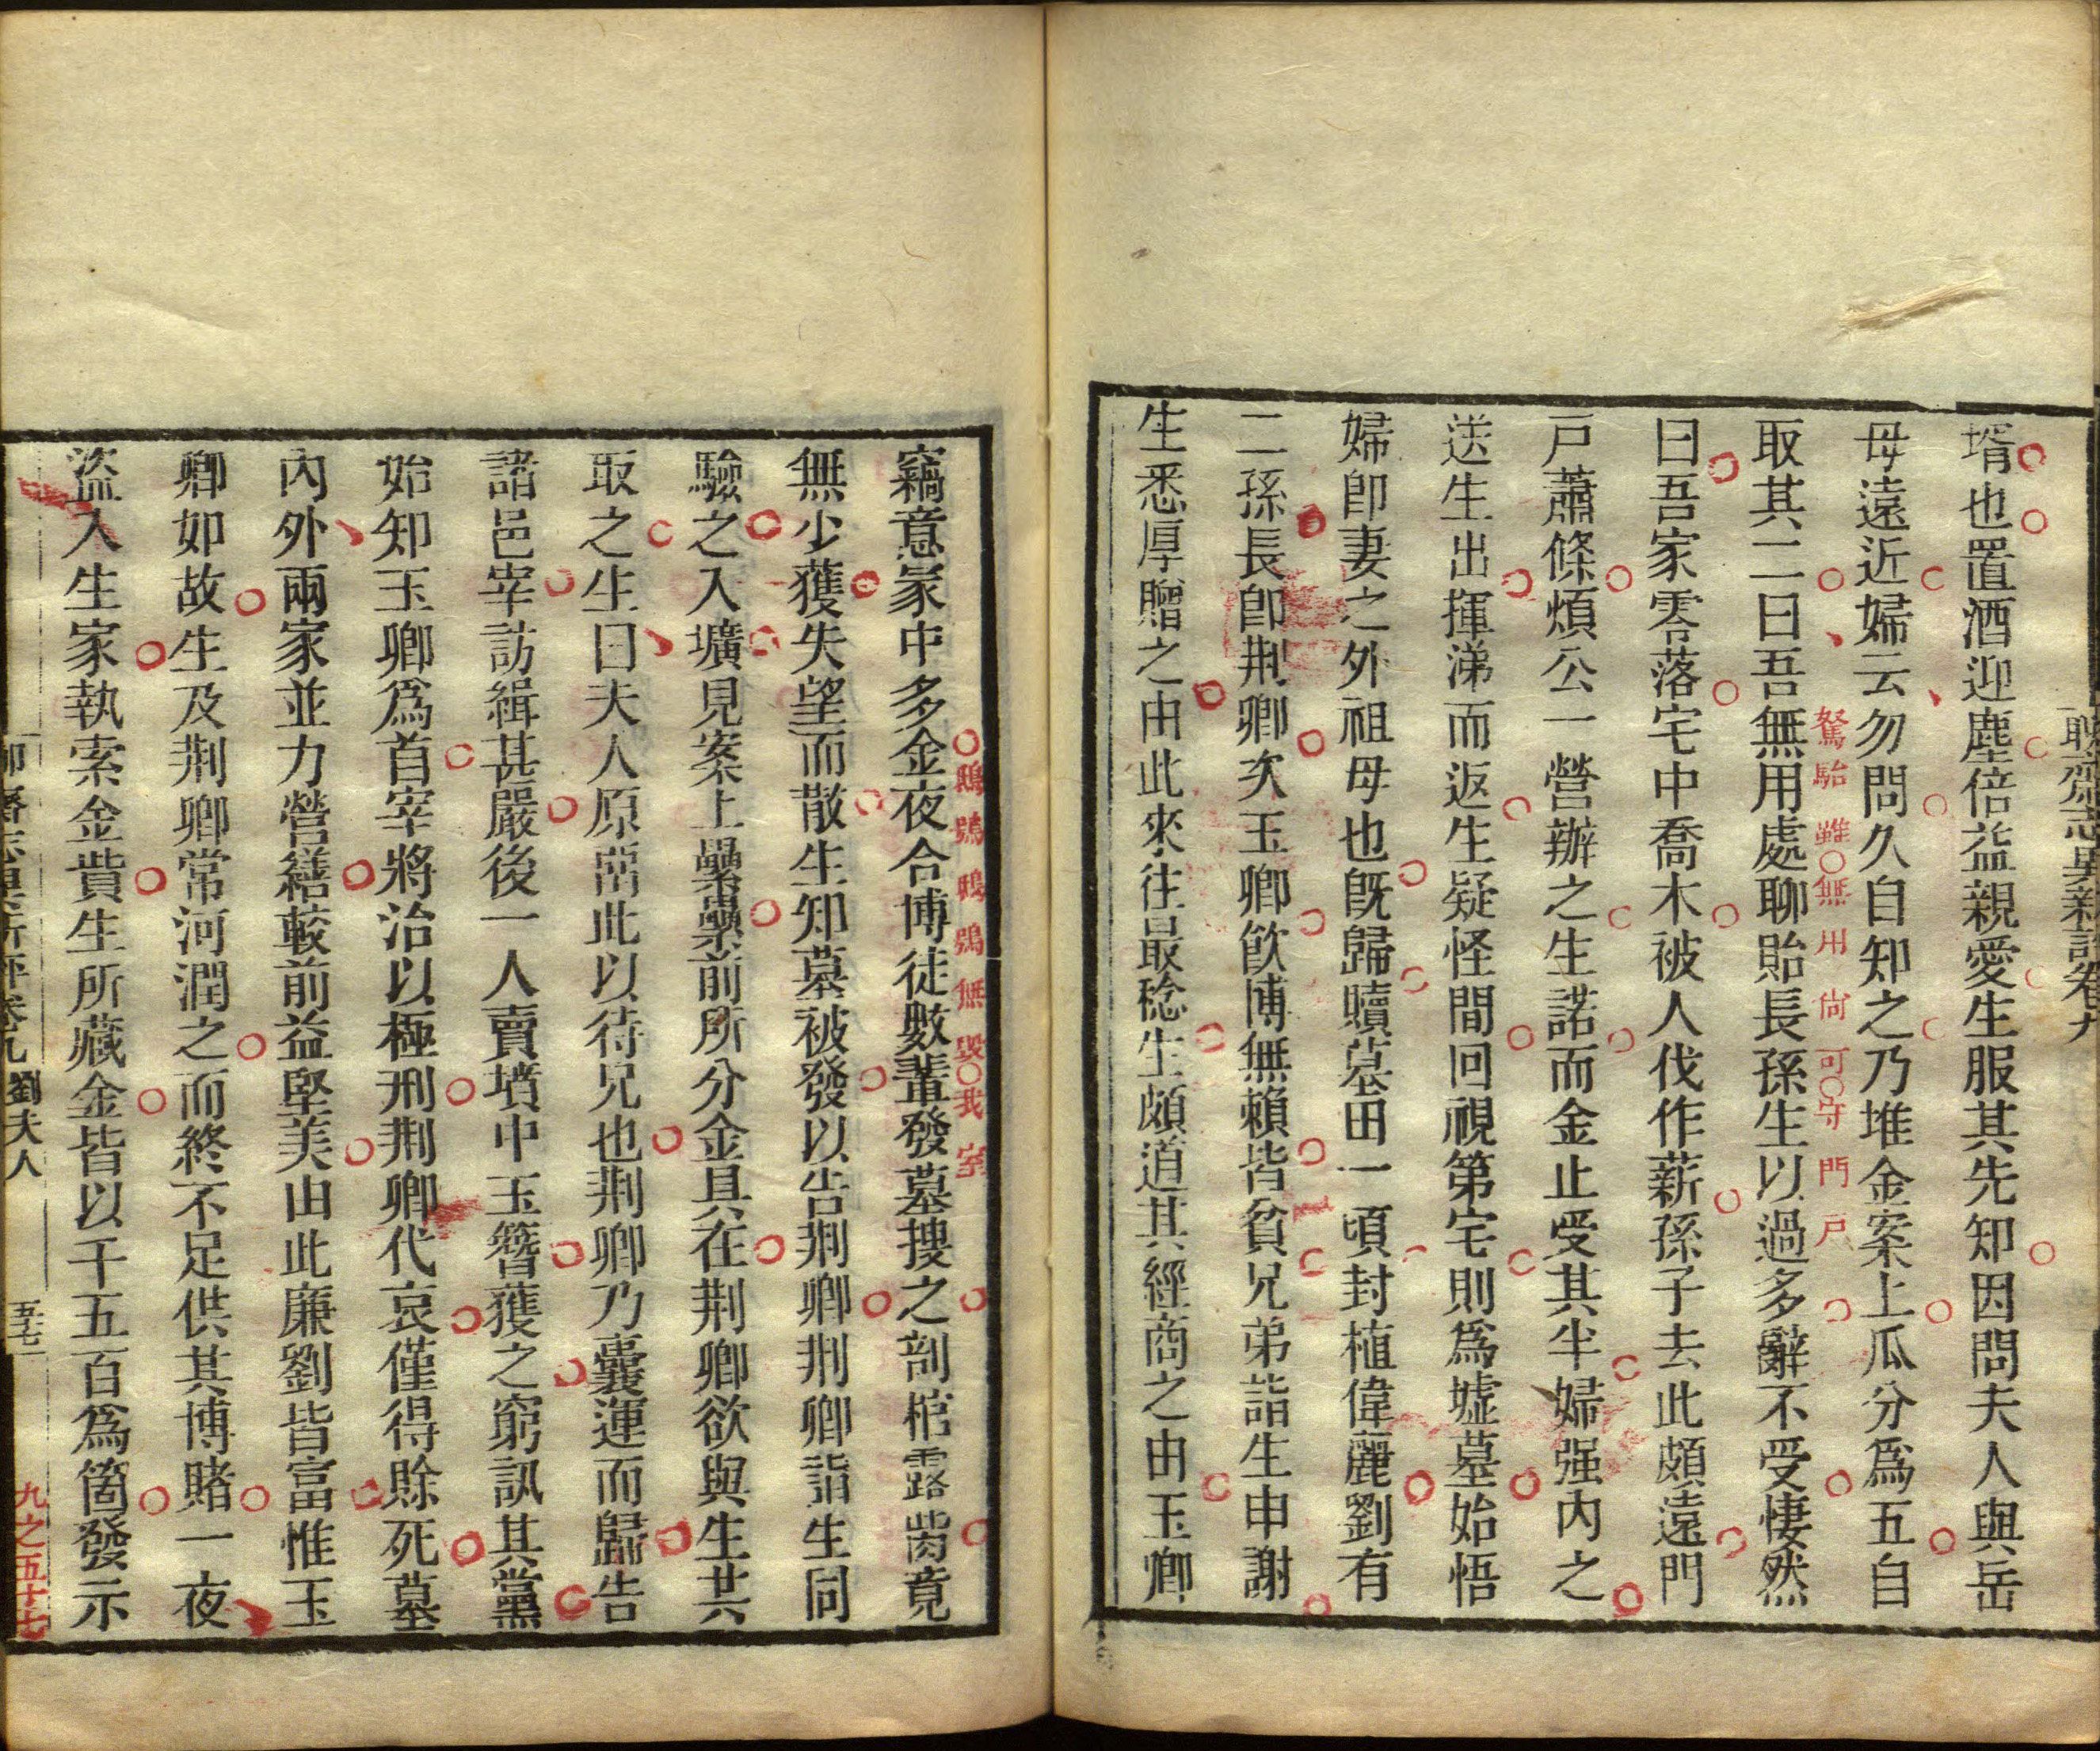 聊齋志異新評卷九
壻也置酒迎塵倍益親愛生服其先知因問夫人與岳
母遠近婦云勿問久自知之乃堆金案上瓜分爲五自
取其二曰吾無用處聊貽長孫生以過多辭不受悽然
駑駘雖無用尙可守門戸
曰吾家零落宅中喬木被人伐作薪孫子去此頗遠門
戸蕭條煩公一營辦之生諾而金止受其半婦强內之
送生出揮涕而返生疑怪間回視第宅則爲墟墓始悟
婦卽妻之外祖母也旣歸贖墓田一頃封植偉麗劉有
二孫長卽荆卿次玉卿飮博無賴皆貧兄弟詣生申謝
生悉厚贈之由此來往最稔生頗道其經商之由玉卿
鴟鴞鴟鴞無毀我室
竊意冢中多金夜合博徒數輩發墓搜之剖棺露胔竟
無少獲失望而散生知墓被發以告荆卿荆卿詣生同
驗之入壙見案上纍纍前所分金具在荆卿欲與生共
取之生曰夫人原留此以待兄也荆卿乃囊運而歸告
諸邑宰訪緝甚嚴後一人賣墳中玉簪獲之窮訊其黨
始知玉卿爲首宰將治以極刑荆卿代哀僅得賒死墓
內外兩家並力營繕較前益堅美由此廉劉皆富惟玉
卿如故生及荆卿常河潤之而終不足供其博賭一夜
盜入生家執索金貲生所藏金皆以千五百爲箇發示
聊齋志異新評卷九 劉夫人 五七
九之五十七